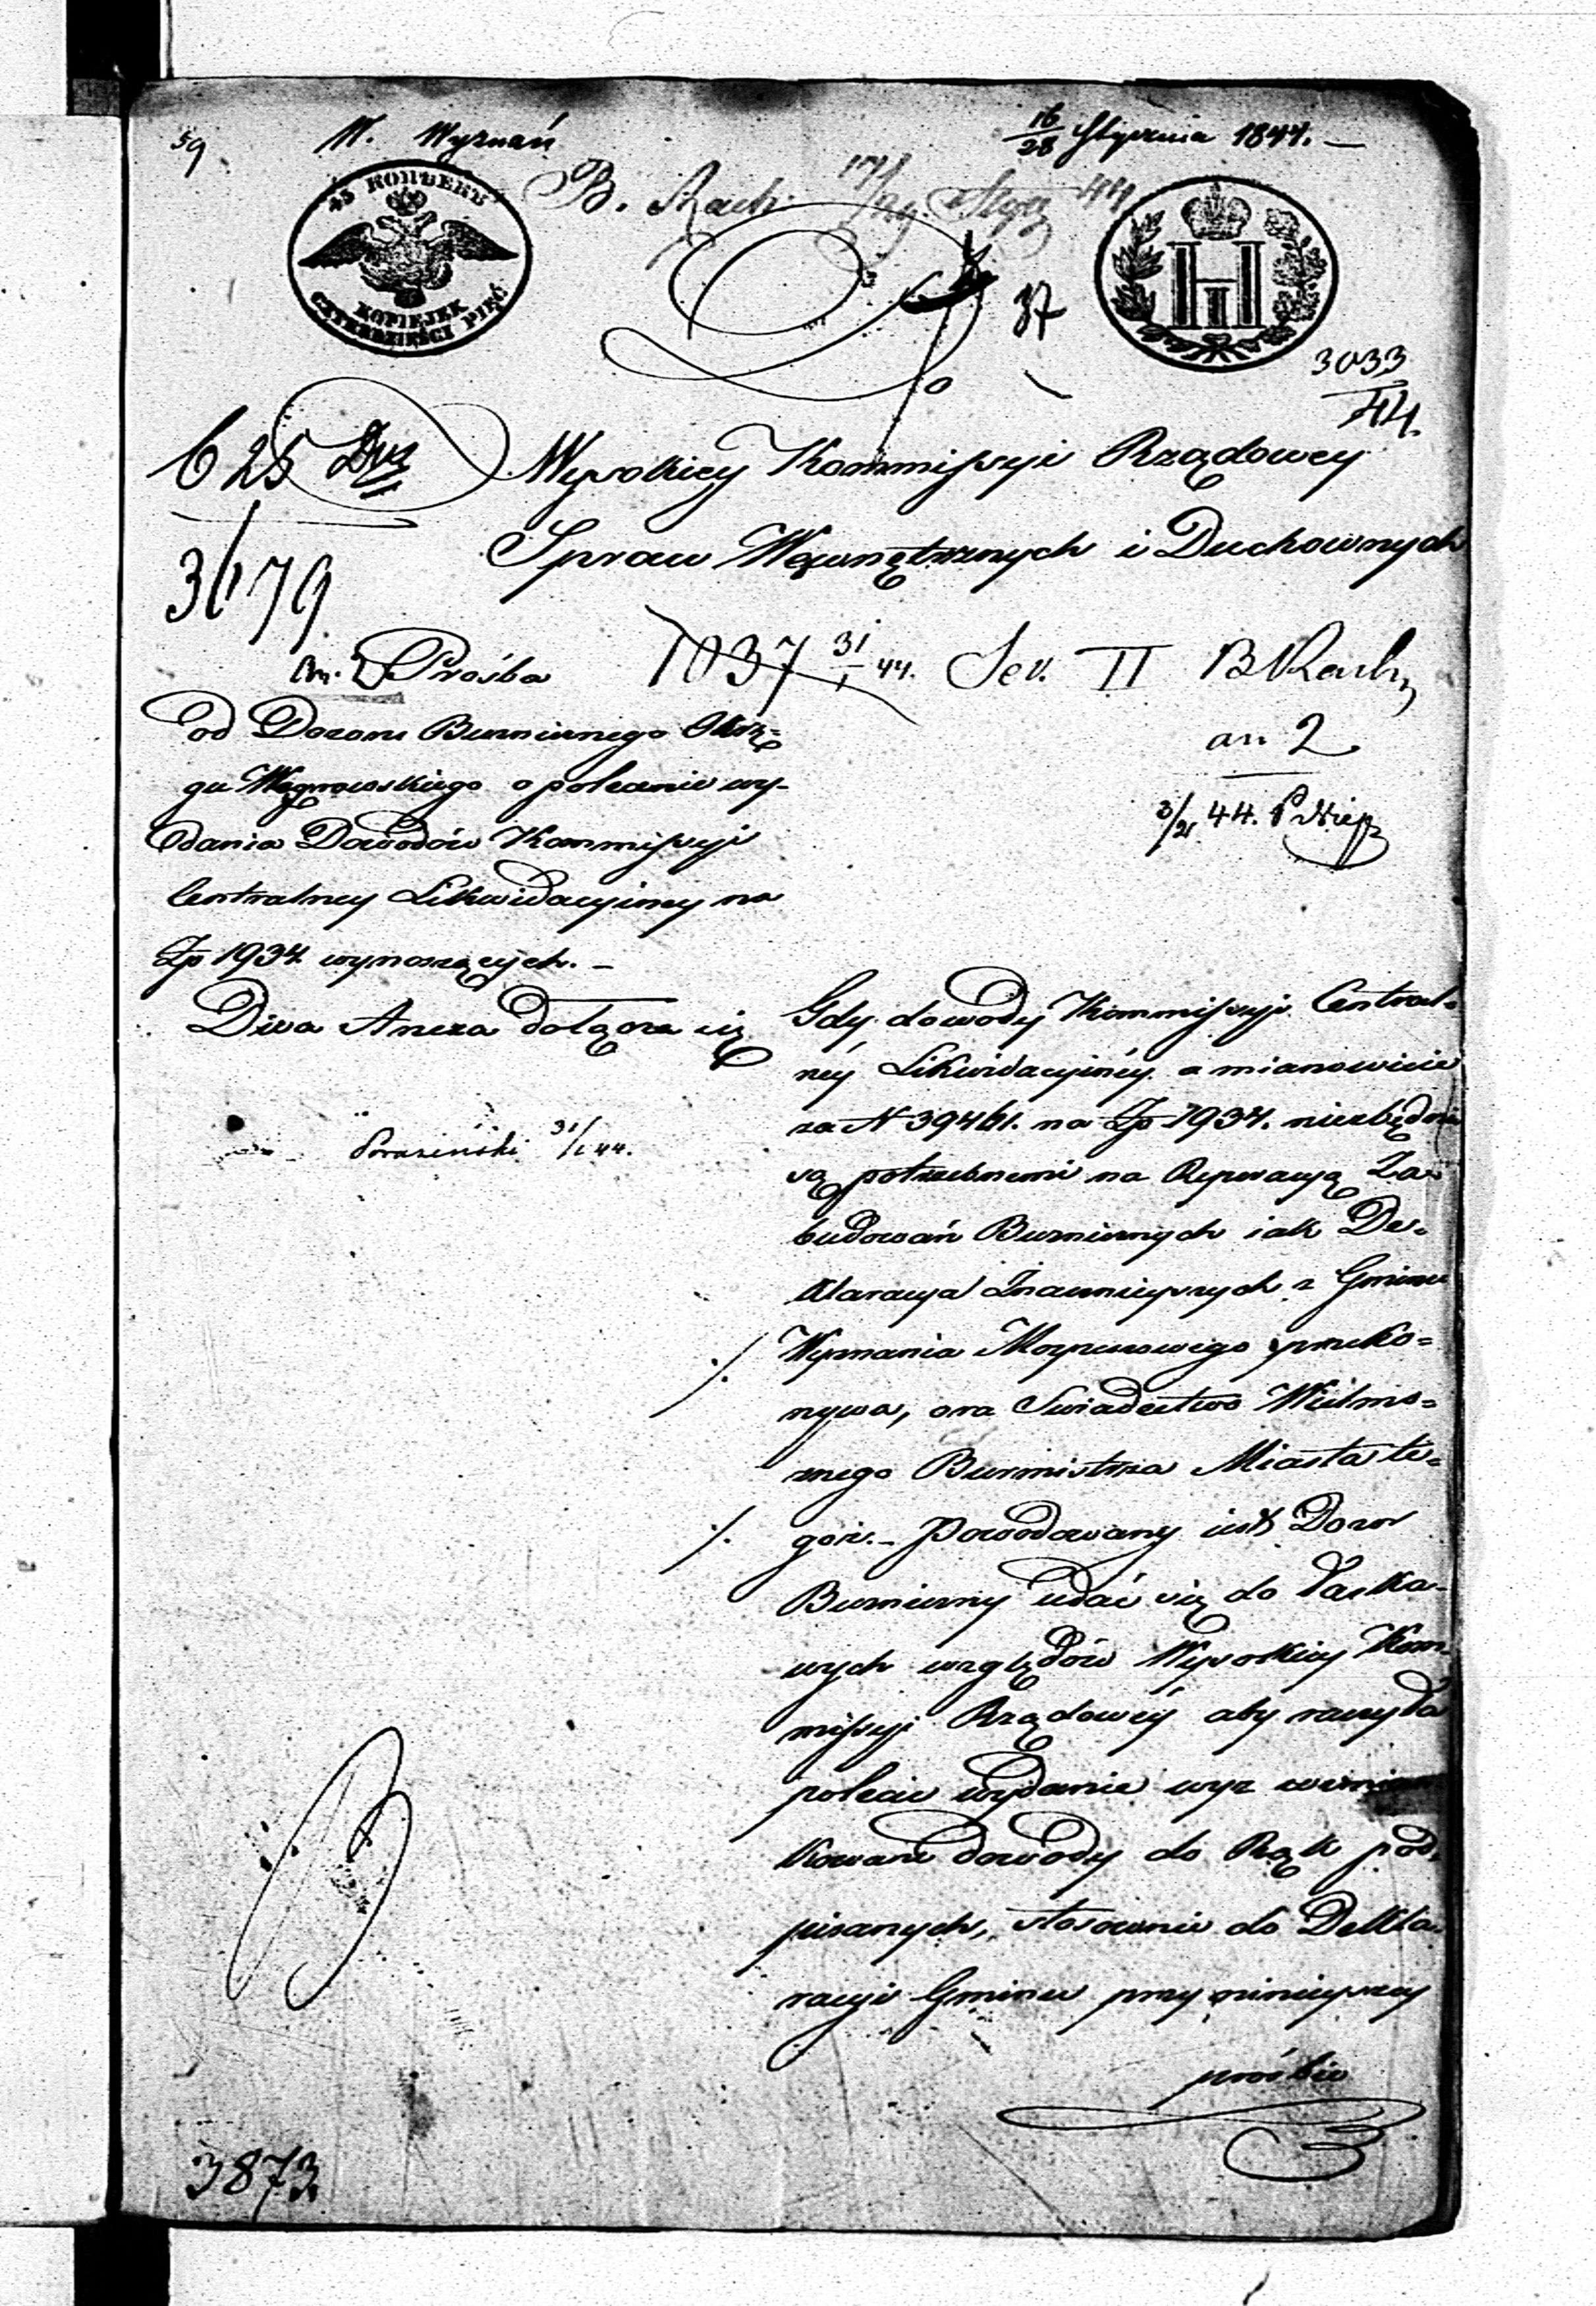 59
W. Wyznań
16/28 Stycznia 1844. —
45 КОПѢЕКЪ
KOPIEJEK
CZTERDZIEŚCI PIĘĆ
B. Rach.
37
3033
44.
625
Wysokiey Kommissyi Rządowey
Spraw Wewnętrznych i Duchownych
3679
Prośba
1037 31/1 44. Sek. II
od Dozoru Bużniczego Okrę=
gu Węgrowskiego o polecenie wy-
dania Dowodów Kommissyi
Centralney Likwidacyiney na
Zp 1934 wynoszących. —
an 2
44.
Dwa Anexa dołącza się
31/1 44.
Gdy dowody Kommissyi Central-
néy Likwidacyinéy a mianowicie
za N 39461. na Zp 1934. niezbędnie
są potrzebnemi na Reperacyą Za-
budowań Bużniczych iak De-
klaracya Znacznieyszych z Gminu
Wyznania Moyżeszowego przeko=
nywa, oraz Swiadectwo Wielmo=
żnego Burmistrza Miasta te-
goż. – Powodowany iest Dozor
Bużniczny udać się do Łaska-
wych względów Wysokiey Kom-
missyi Rządowéy aby raczyła
polecić wydanie wyz wzmian-
kowane dowody do Rąk pod-
pisanych, stosownie do Dekla-
racyi Gminu przy ninieyszey
prośbie
3873